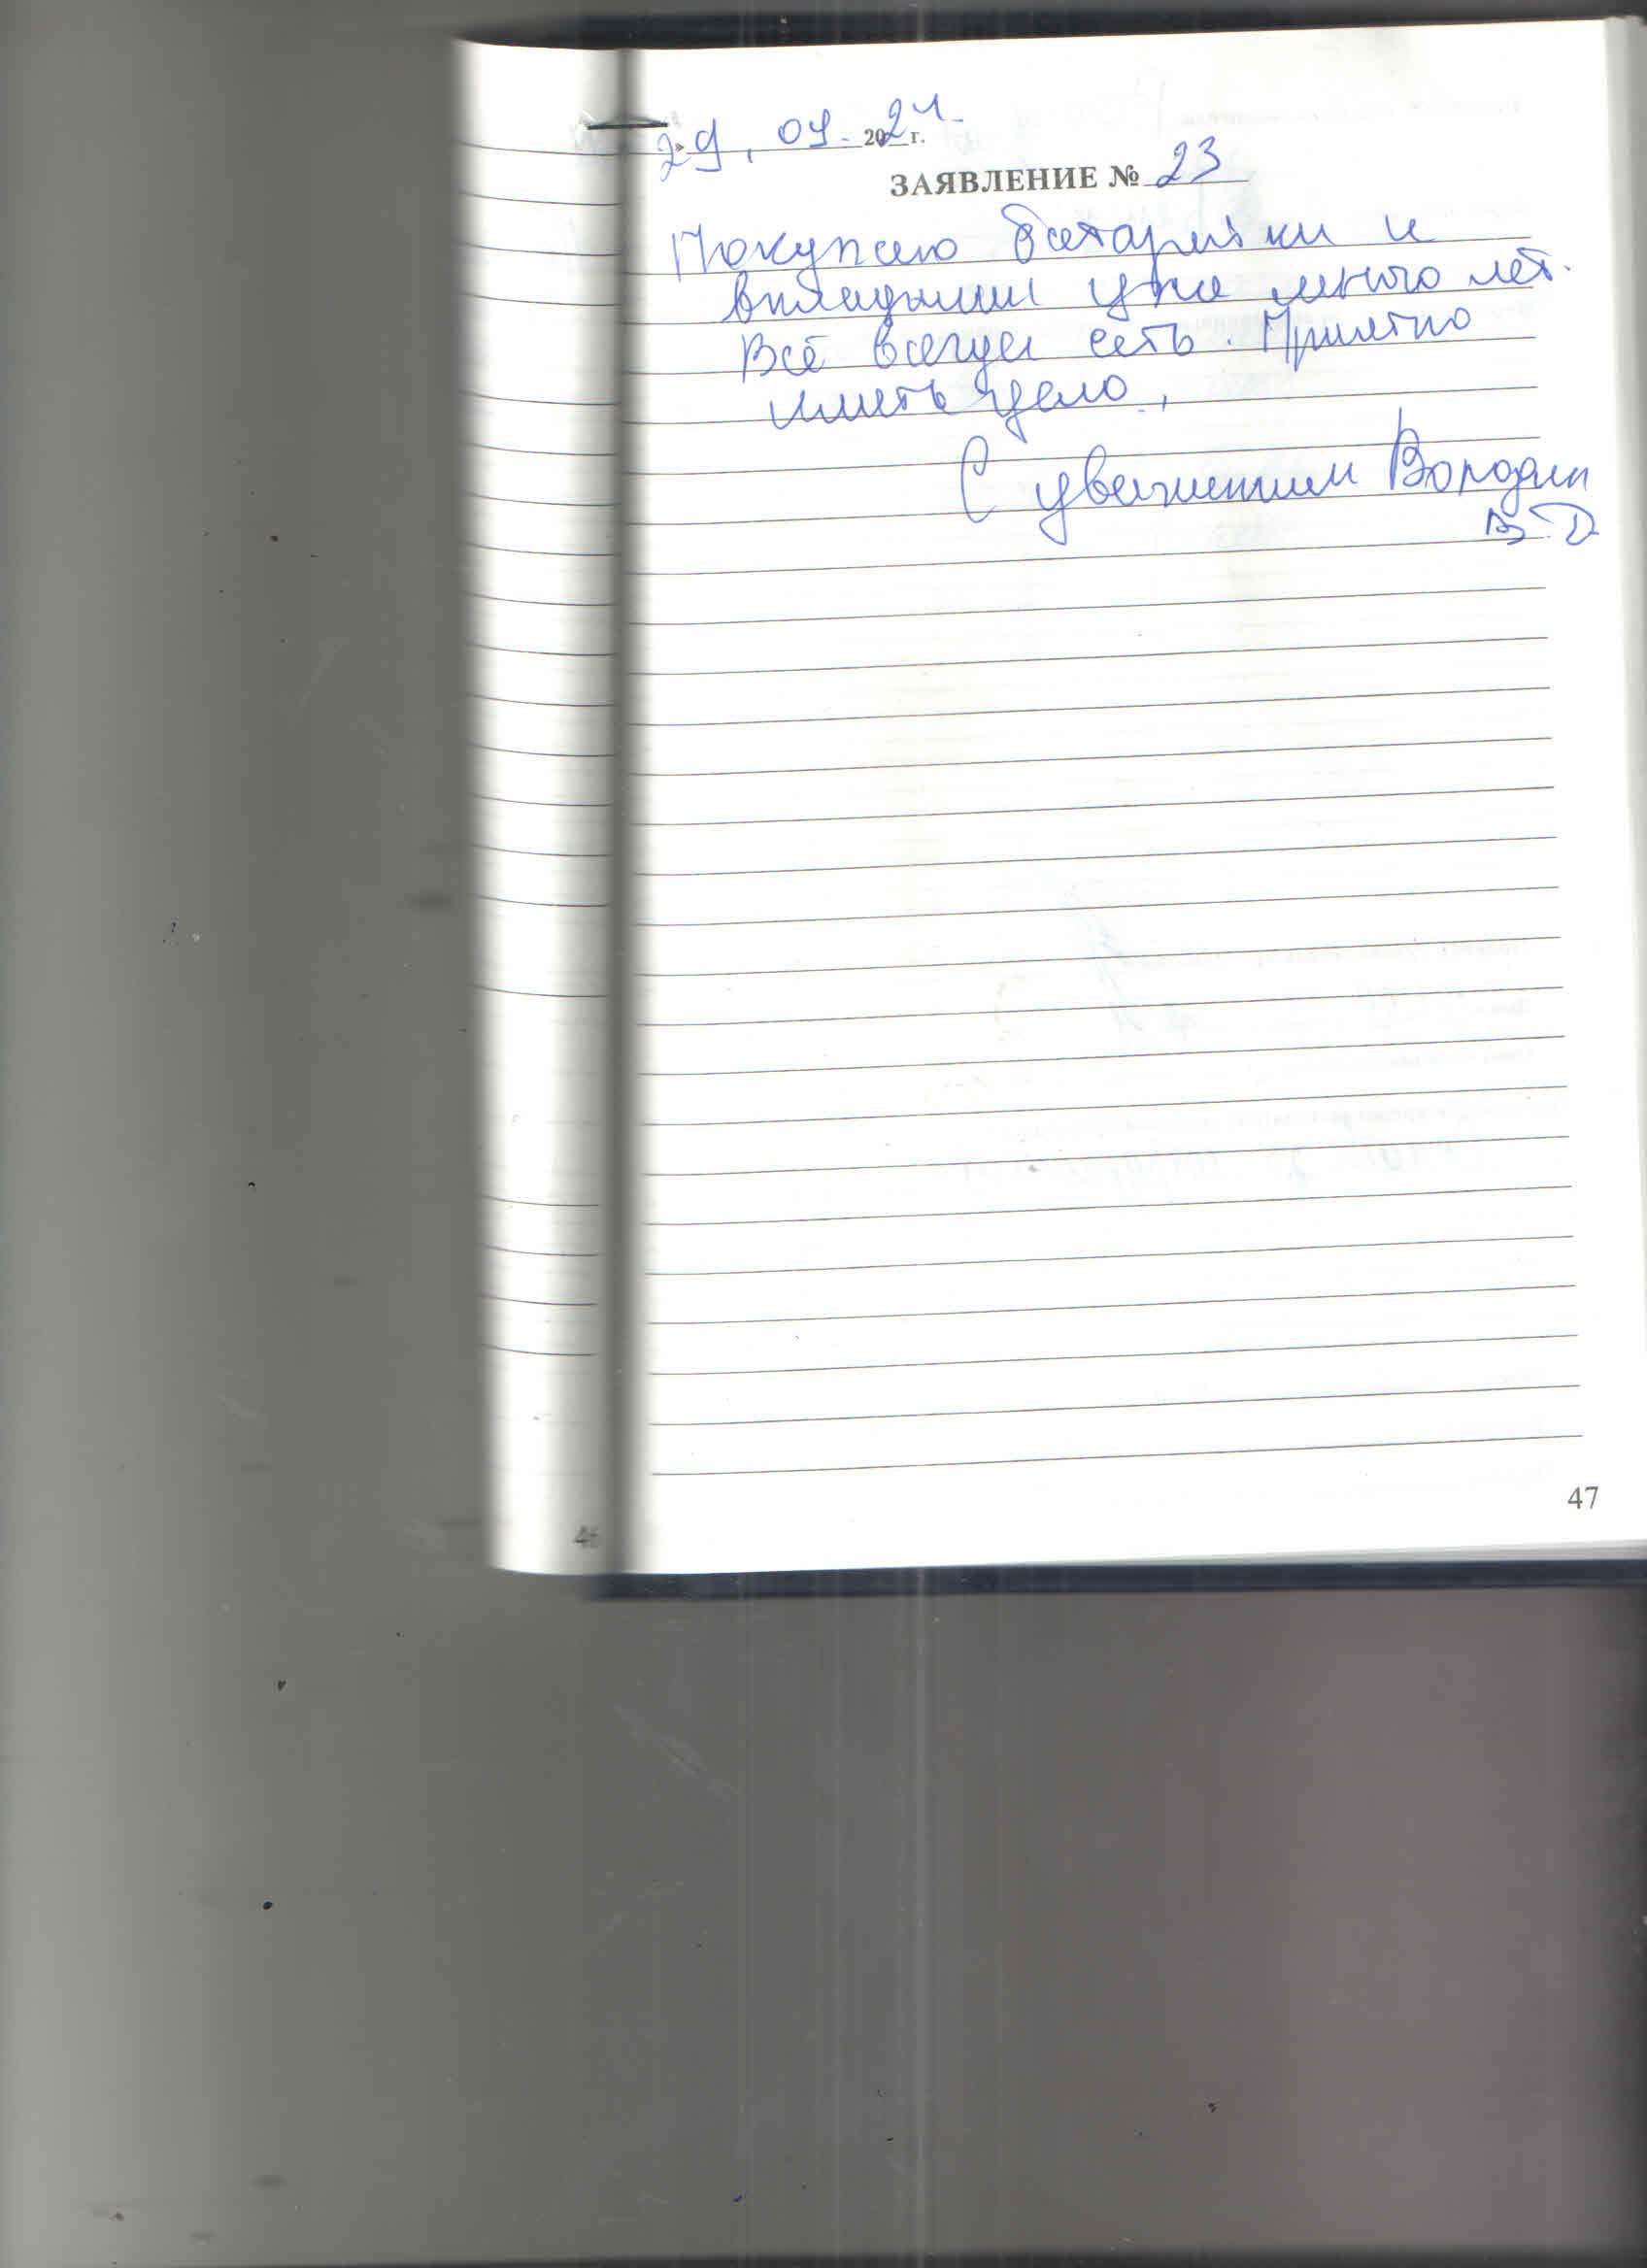 29. 09. 2021 г.
ЗАЯВЛЕНИЕ № 23
Покупаю батарейки и
вкладыши уже много лет.
Всё всегда есть. Приятно
иметь дело.
С уважением
В. Д.
47